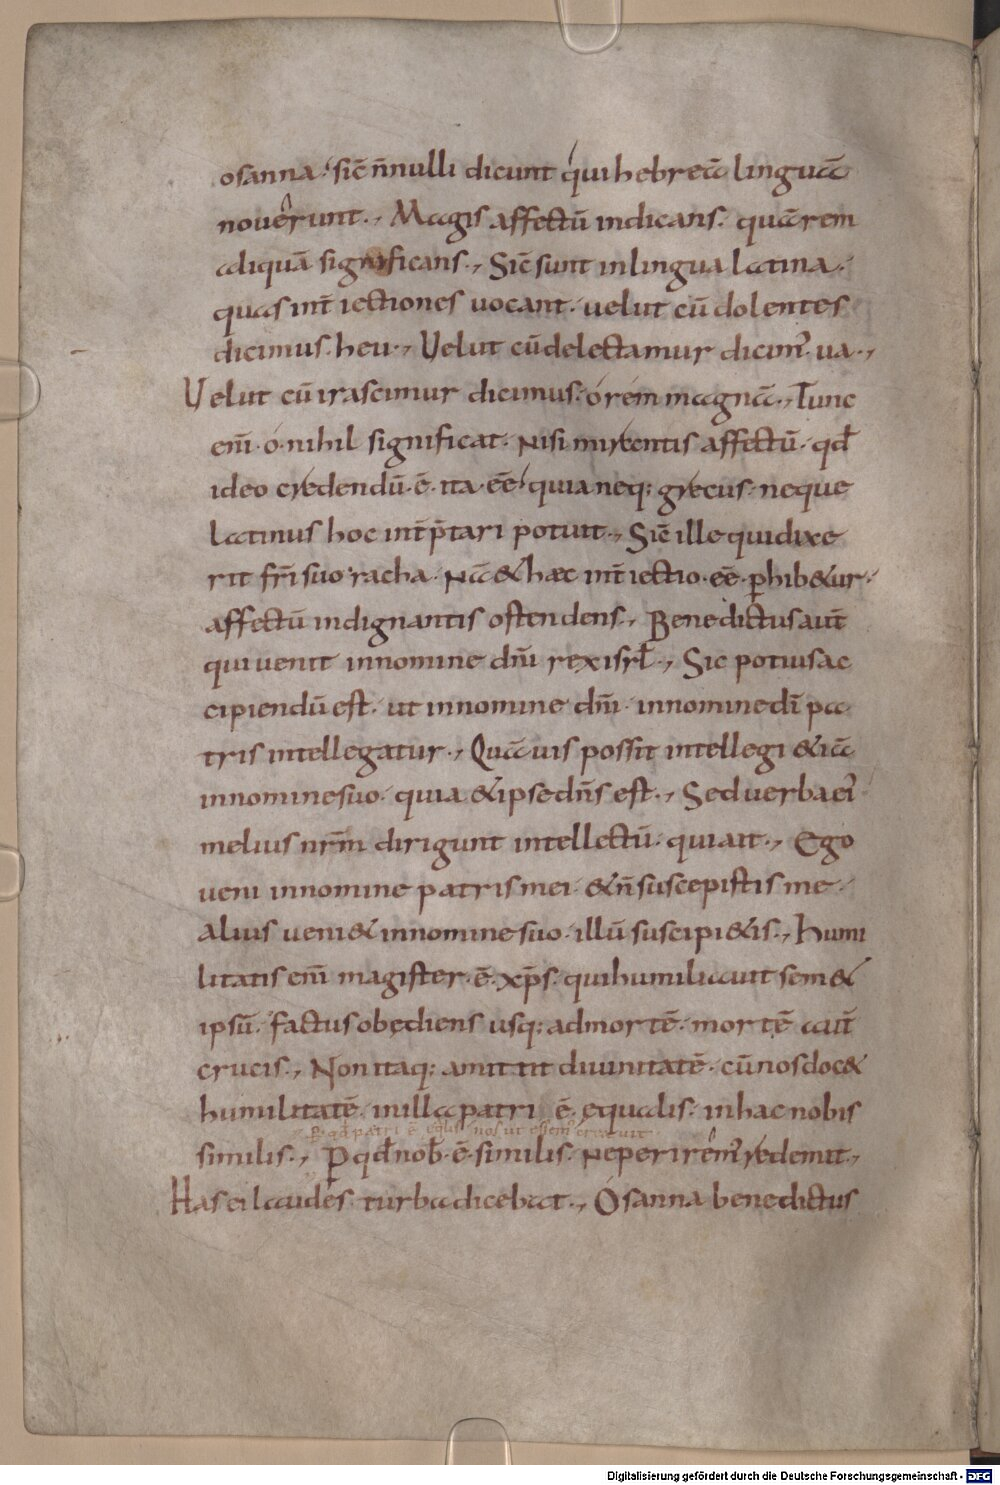 osanna sic̄ n̄nulli dicunt qui hebreā linguā
nouerunt., Magis affectū indicans. quārem
aliquā significans., Sic̄ sunt inlingua latina.
quas int̄iectiones uocant. uelut cū dolentes
dicimus. heu., Uelut cū delectamur dicim'. ua.,
Uelut cū irascimur dicimus. ó rem magnā., Tunc
eni̅. ó. nihil significat. Nisi mirentis affectū. qđ
ideo credendū. ē. ita eē. quia neq; grecus. neque
latinus hoc int̄p̄tari potuit., Sic̄ ille qui dixe
rit fr̄i suo racha. Nā & hæc int̄iectio. eē. ꝑhib&ur.
affectū indignantis ostendens., Benedictus aut̄
qui uenit innomine dn̄i rex isrł., Sic potius ac
cipiendū est. ut innomine dn̄i. innomine dī pa
tris intellegatur., Quāuis possit intellegi & iā
innomine suo. quia & ipse dn̄s est., Sed uerba ei'
melius nr̄m dirigunt intellectū. quia it., Ego
ueni innomine patris mei. & n̄ suscepistis me.
Alius ueni& innomine suo. illū suscipi&is., Humi
litatis eni̅ magister. ē. xp̄s. qui humiliauit sem&
ipsū. factus obędiens usq; ad mortē. mortē aut̄
crucis., Non itaq; amittit diuinitatē. cū nos doc&
humilitatē. in illa patri ē. ęqualis. in hac nobis
ꝑ qđ patri ē ęqlis nos ut essem' creauit.
similis., ꝑ qđ nob̄. ē. similis. Ne perirem' redemit.,
Has ei laudes turba dicebat., Ósanna benedictus
Digitalisierung gefördert durch die Deutsche Forschungsgemeinschaft - DFG